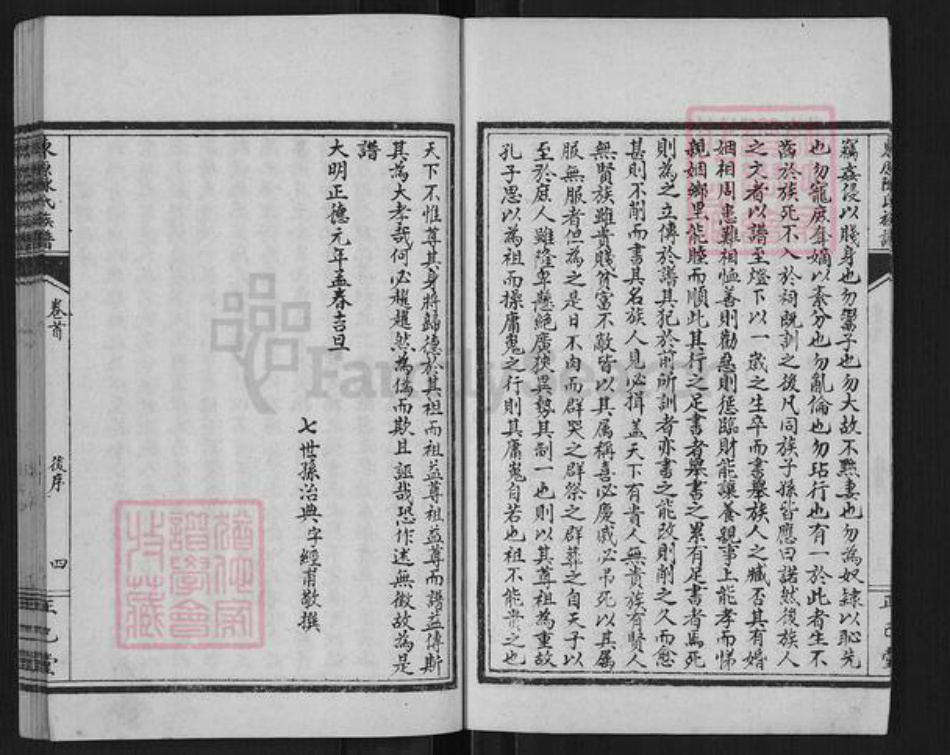 竊姦侵以賤身也勿鬻子也勿大故不黜妻也勿為奴隸以恥先
也勿寵庶奪嫡以紊分也勿亂倫也勿玷行也有一於此者生不
齒於族死不入於祠既訓之後凡同族子孫皆應曰諾然後族人
之文者以譜至燈下以一歲之生卒而書舉族人之臧否其有婚
姻相周患難相恤善則勸惡則懲臨財能讓養親事上能孝而悌
親姻鄉里能睦而順此其行之足書者舉書之累有足書者焉死
則為之立傳於譜其犯於前所訓者亦書之能改則削之久而愈
甚則不削而書其名族人見必揖蓋天下有貴人無貴族有賢人
無賢族雖貴賤貧富不敵皆以其属稱喜必慶戚必吊死以其属
服無服者但為之是日不肉而群哭之群祭之群葬之自天子以
至於庶人雖隆卑懸絕廣狹異勢其制一也則以其尊祖為重故
孔子思以為祖而操庸鬼之行則其庸鬼自若也祖不能賞之也
天下不惟尊其身將歸德於其祖而祖益尊祖益尊而譜益傳斯
其為大孝哉何必趨趨然為偽而欺且誣哉恐作述無徵故為是
譜
大明正德元年孟春吉旦
七世孫治典字經甫敬撰
氏族譜
卷首
後序
四